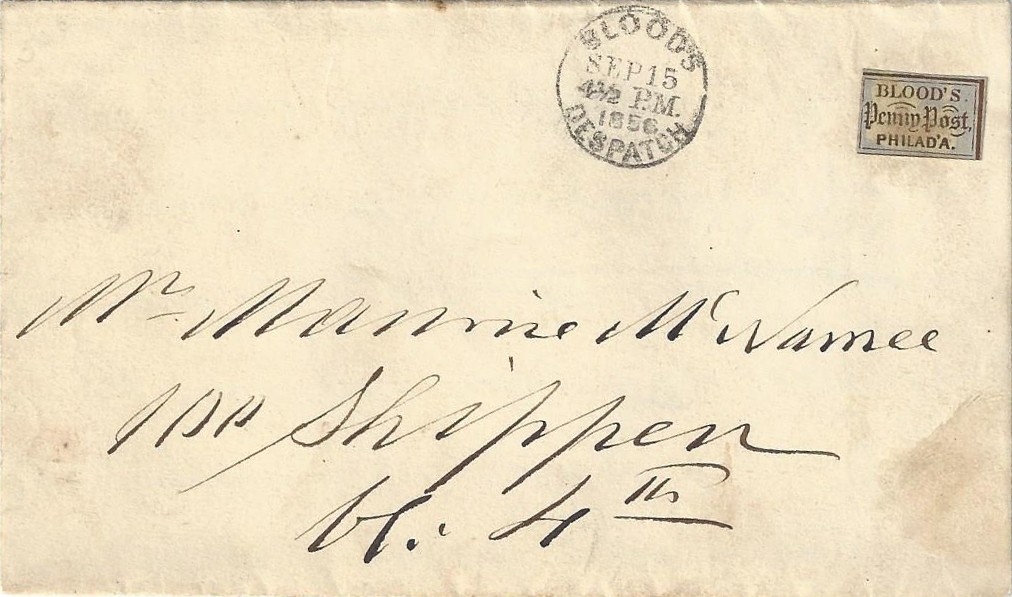 BLOOD'S
SEP 15
4½ P.M.
1856
DESPATCH
BLOOD'S
Penny Post,
PHILAD'A.
Mr Maurice McNamee
100 Shippen
bl. 4th